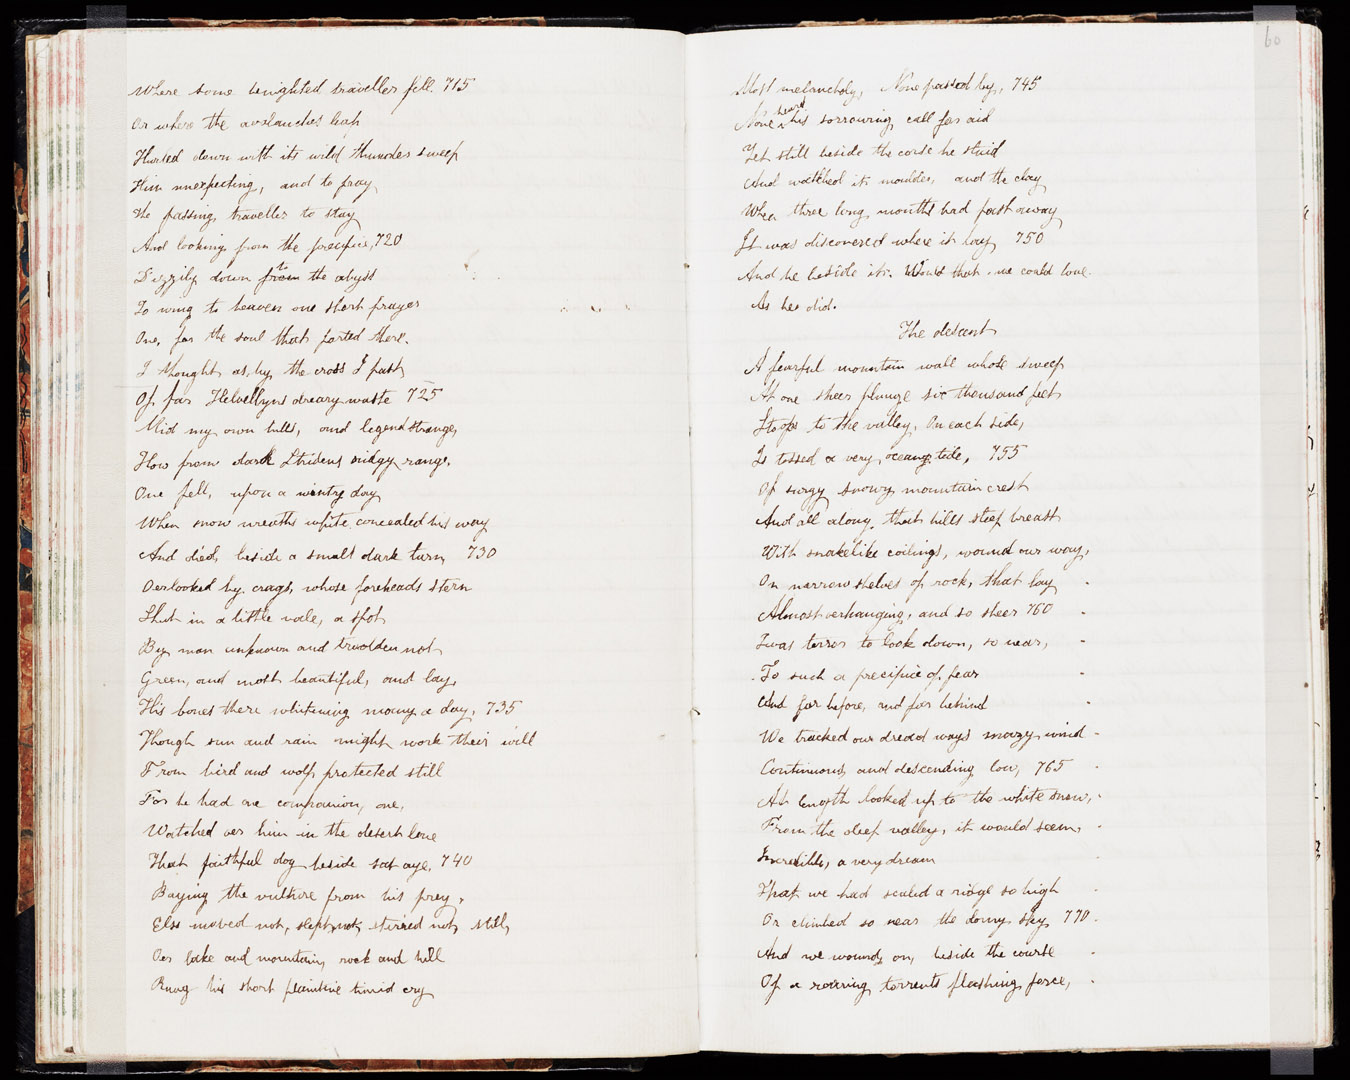 Where some benighted traveller fell. 715
Or where the avalanches leap
Hurled down with its wild thunder sweep
Him unexpecting, and to pray
The passing traveller to stay
And looking from the precipice, 720
Dizzily down from to the abyss
To wing to heaven one short prayer
One, for the soul that parted there.
I thought as, by the cross I past
Of far Helvellyns dreary waste 725
Mid my own hills, and legend strange,
How from dark Stridens ridgy range,
One fell, upon a wintry day
When snow wreaths white concealed his way
And died, beside a small dark tarn, 730
Oerlooked by crags, whose foreheads stern
Shut in a little vale, a spot
By man unknown and trodden not
Green, and most beautiful, and lay,
His bones there whitening many a day, 735
Though sun and rain might work their will
From bird and wolf protected still
For he had one companion, one,
Watched oer him in the desert lone
That faithful dog beside sat aye, 740
Baying the vulture from his prey,
Else moved not, slept not, stirred not, still,
Oer lake and mountain, rock and hill
Rung his short plaintive timid cry
60
Most melancholy, None passed by, 745
None heard his sorrowing call for aid
Yet still beside the corse he staid
And watched it moulder, and the clay
When three long months had past away
It was discovered where it lay 750
And he beside it. Would that we could love
As he did.
The descent
A fearful mountain wall whose sweep
At one sheer plunge six thousand feet
Stoops to the valley. On each side,
Is tossed a very oceans tide, 755
Of surgy snowy mountain crest
And all along that hills steep breast
With snakelike coilings, wound our way,
On narrow shelves of rock, that lay
Almost overhanging, and so sheer 760
Twas terror to look down, so near,
To such a precipice of fear
And far before, and far behind
We tracked our dread ways mazy wind
Continuous, and descending low, 765
At length looked up to the white snow,
From the deep valley, it would seem,
Incredible, a very dream
That we had scaled a ridge so high
Or climbed so near the domy sky 770
And we wound, on, beside the course
Of a roaring torrents flashing force,